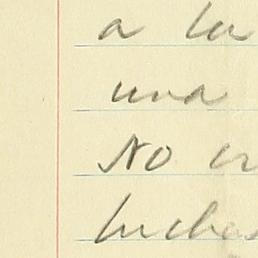 a la
una
No cr
luches